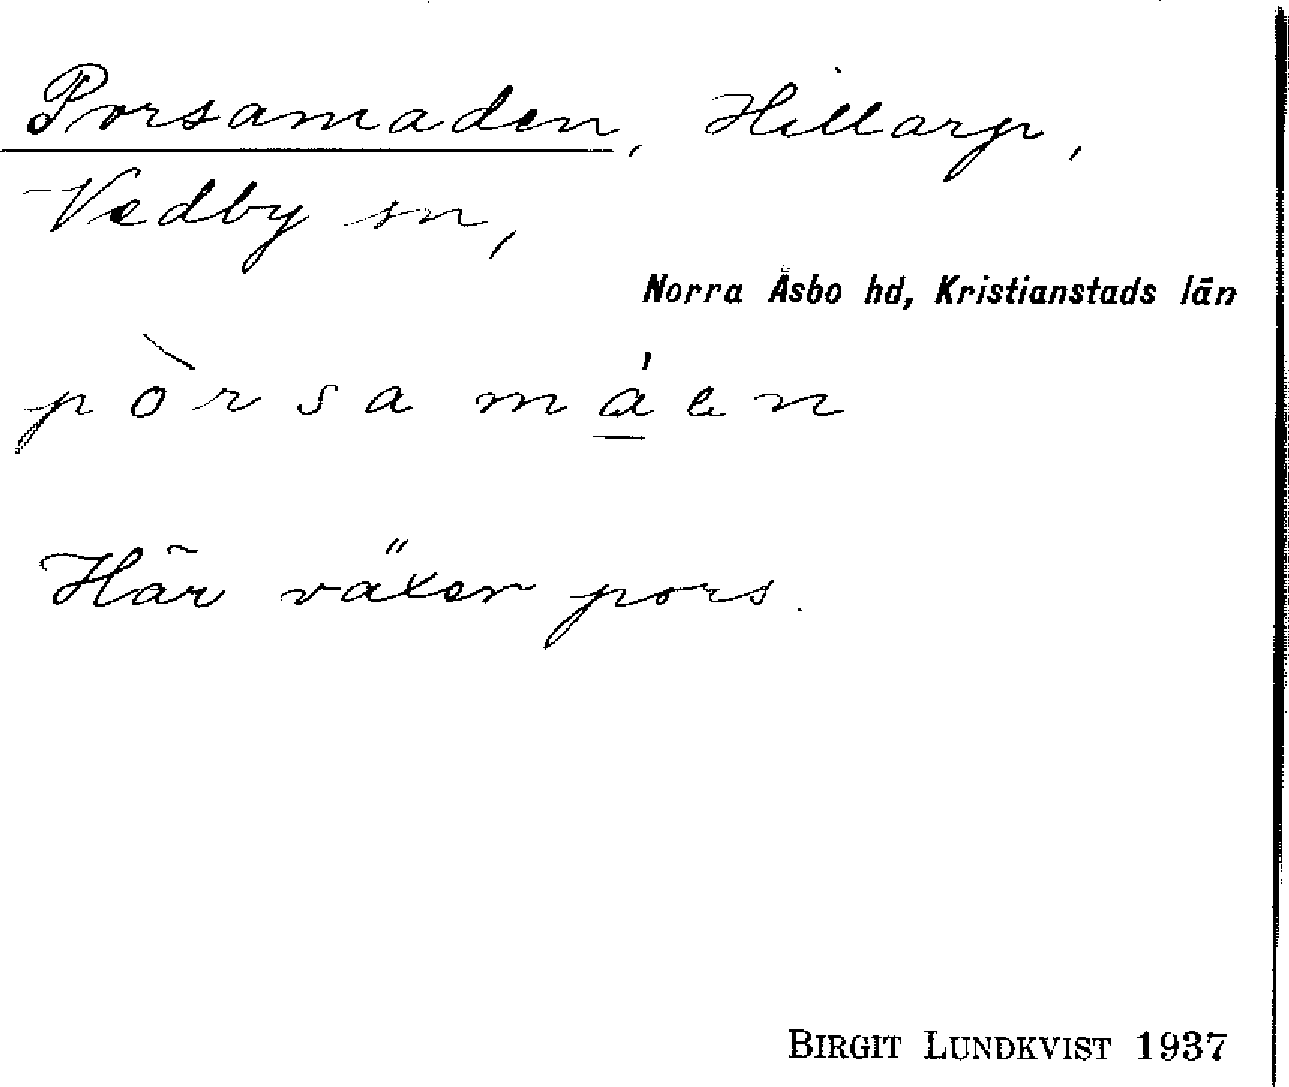 Porsamaden, Hillarp,
Vedby sn,
Norra Åsbo hd, Kristianstads län
pòrsa máen
Här växer pors.
BIRGIT LUNDKVIST 1937